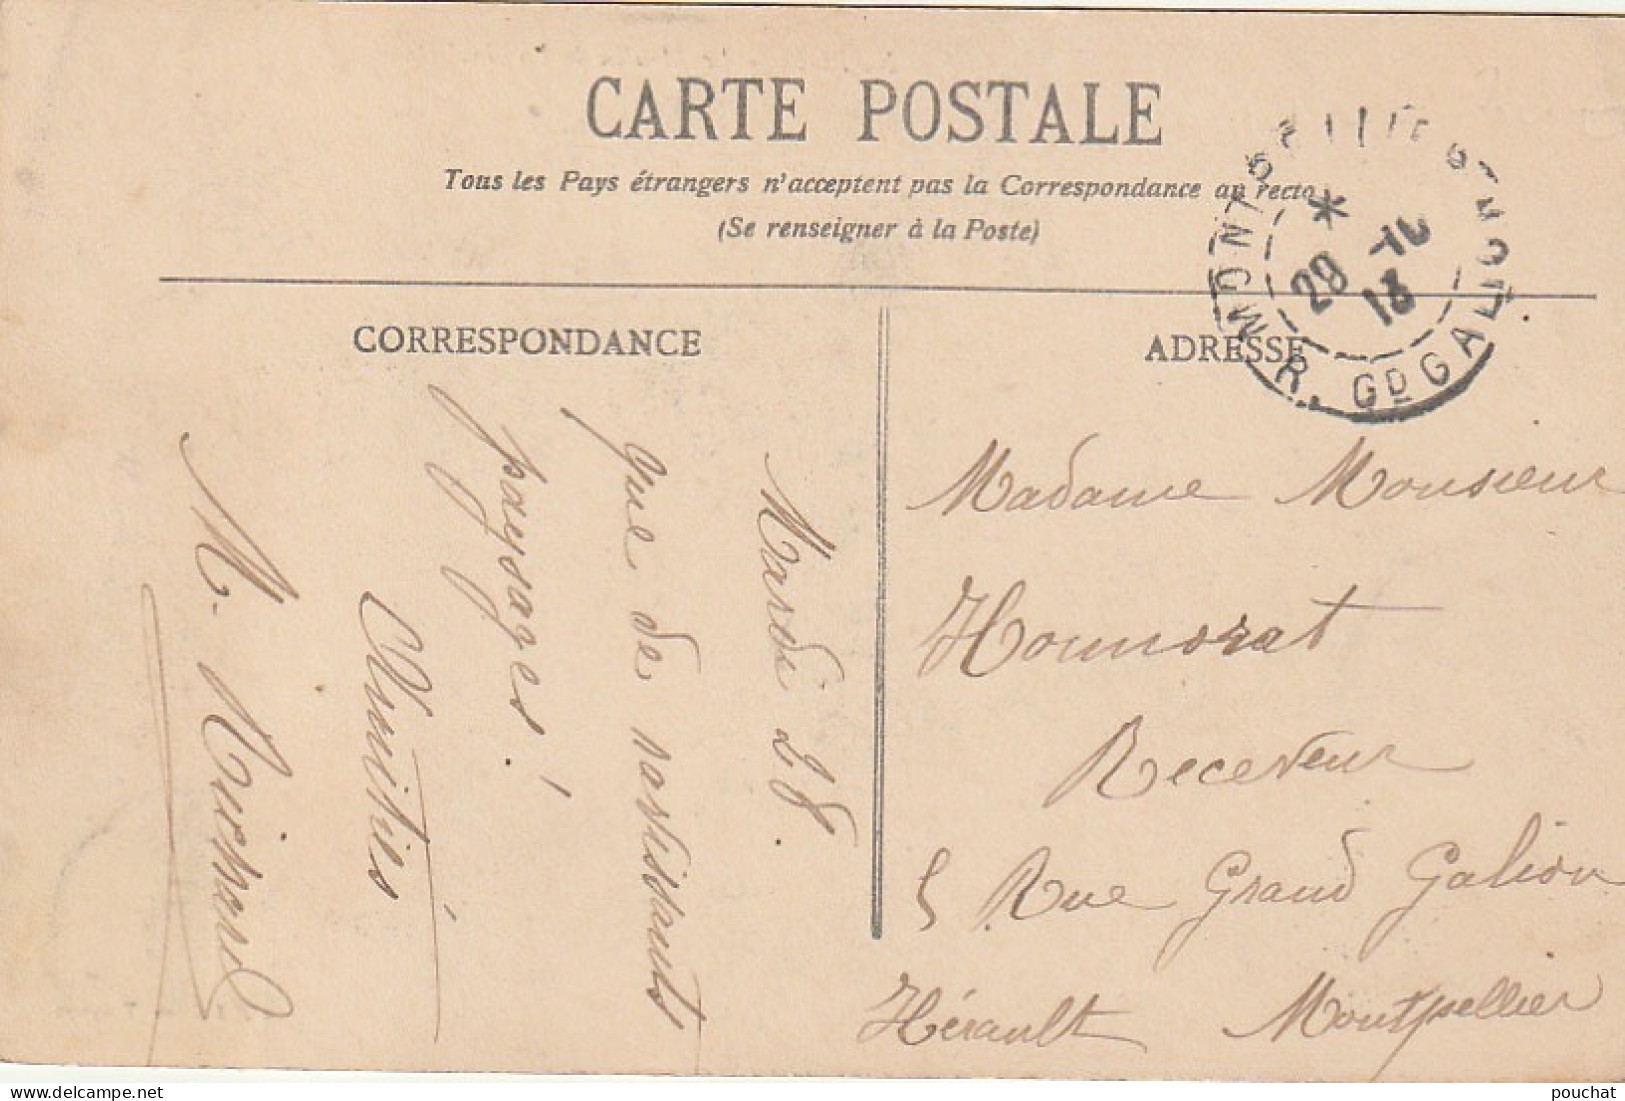 CARTE POSTALE
Tous les Pays étrangers n'acceptent pas la Correspondance au recto
(Se renseigner à la Poste)
CORRESPONDANCE
Mardi 28.
que de ravissants
paysages!
Amitiés
M. Ruichard
ADRESSE
Madame Monsieur
Honnorat
Receveur
5 Rue Grand Galion
Hérault Montpellier
R. GD GALION
29 -10
13
pouchat